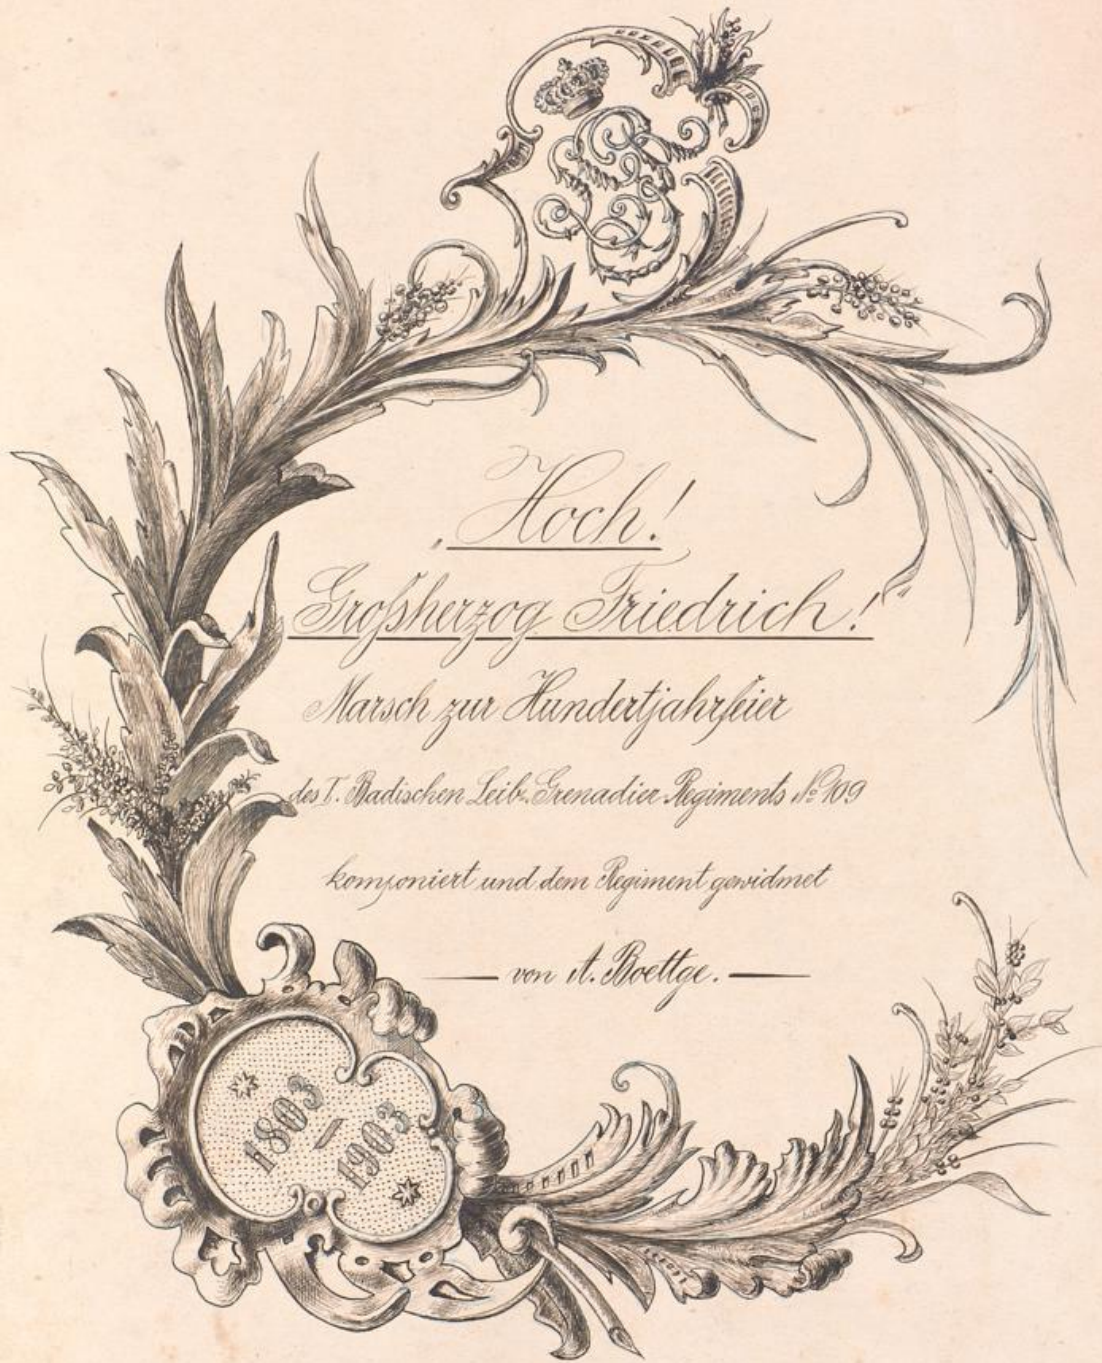 „Hoch!
Großherzog Friedrich!“
Marsch zur Hundertjahrfeier
des I. Badischen Leib-Grenadier-Regiments № 109
komponiert und dem Regiment gewidmet
— von A. Boettge. —
1803 / 1903